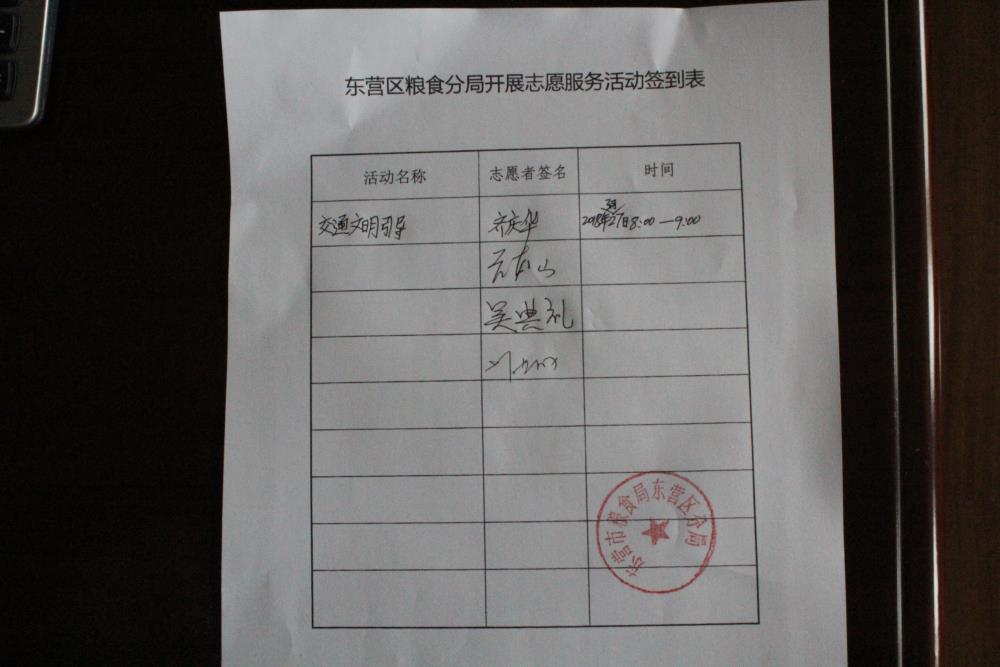 东营区粮食分局开展志愿服务活动签到表
活动名称 志愿者签名 时间
交通文明引导 齐庆华 2018年 27日8:00—9:00
吴典礼
东营市粮食局东营区分局